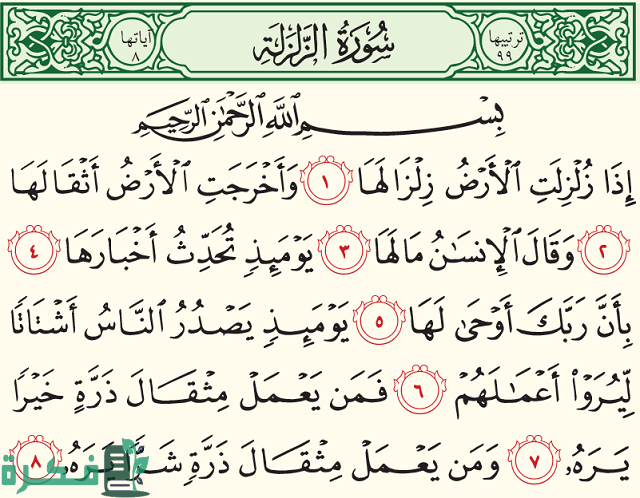 ترتيبها ٩٩ سُورَةُ الزَّلْزَلَةِ آياتها ٨
بِسْمِ اللَّهِ الرَّحْمَٰنِ الرَّحِيمِ
إِذَا زُلْزِلَتِ ٱلْأَرْضُ زِلْزَالَهَا ١ وَأَخْرَجَتِ ٱلْأَرْضُ أَثْقَالَهَا
٢ وَقَالَ ٱلْإِنسَٰنُ مَا لَهَا ٣ يَوْمَئِذٍ تُحَدِّثُ أَخْبَارَهَا ٤
بِأَنَّ رَبَّكَ أَوْحَىٰ لَهَا ٥ يَوْمَئِذٍ يَصْدُرُ ٱلنَّاسُ أَشْتَاتًا
لِّيُرَوْا۟ أَعْمَٰلَهُمْ ٦ فَمَن يَعْمَلْ مِثْقَالَ ذَرَّةٍ خَيْرًا
يَرَهُۥ ٧ وَمَن يَعْمَلْ مِثْقَالَ ذَرَّةٍ شَرًّا يَرَهُۥ ٨
فكرة